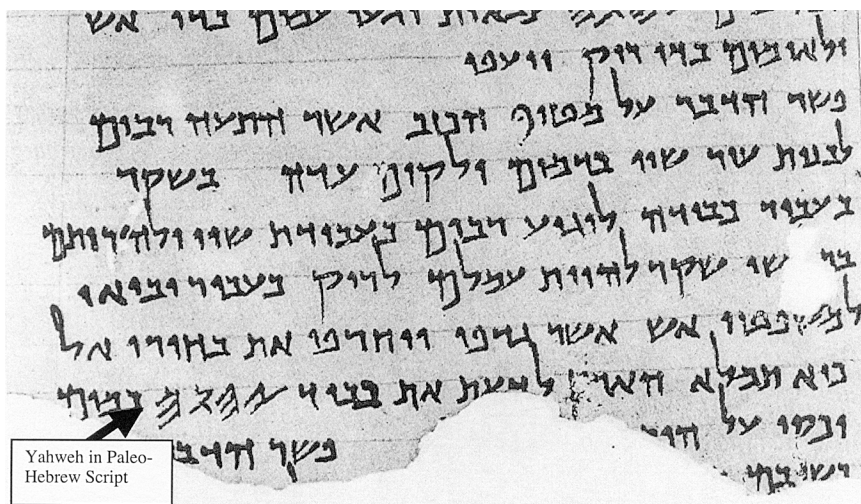 𐤉𐤄𐤅𐤄 צבאות יגעו עמים בדי אש
ולאומים בדי ריק ייעפו
פשר הדבר על מטיף הכזב אשר התעה רבים
לבנות עיר שוו בדמים ולקים עדה בשקר
בעבור כבודה לוגיע רבים בעבודת שוו ולהרותם
שי שקר להיות עמלם לריק בעבור יבואו
למשפטי אש אשר גדפו ויחרפו את בחירי אל
כיא תמלא הארץ לדעת את כבוד 𐤉𐤄𐤅𐤄 כמים
יכסו על הים פשר הדבר
Yahweh in Paleo-
Hebrew Script